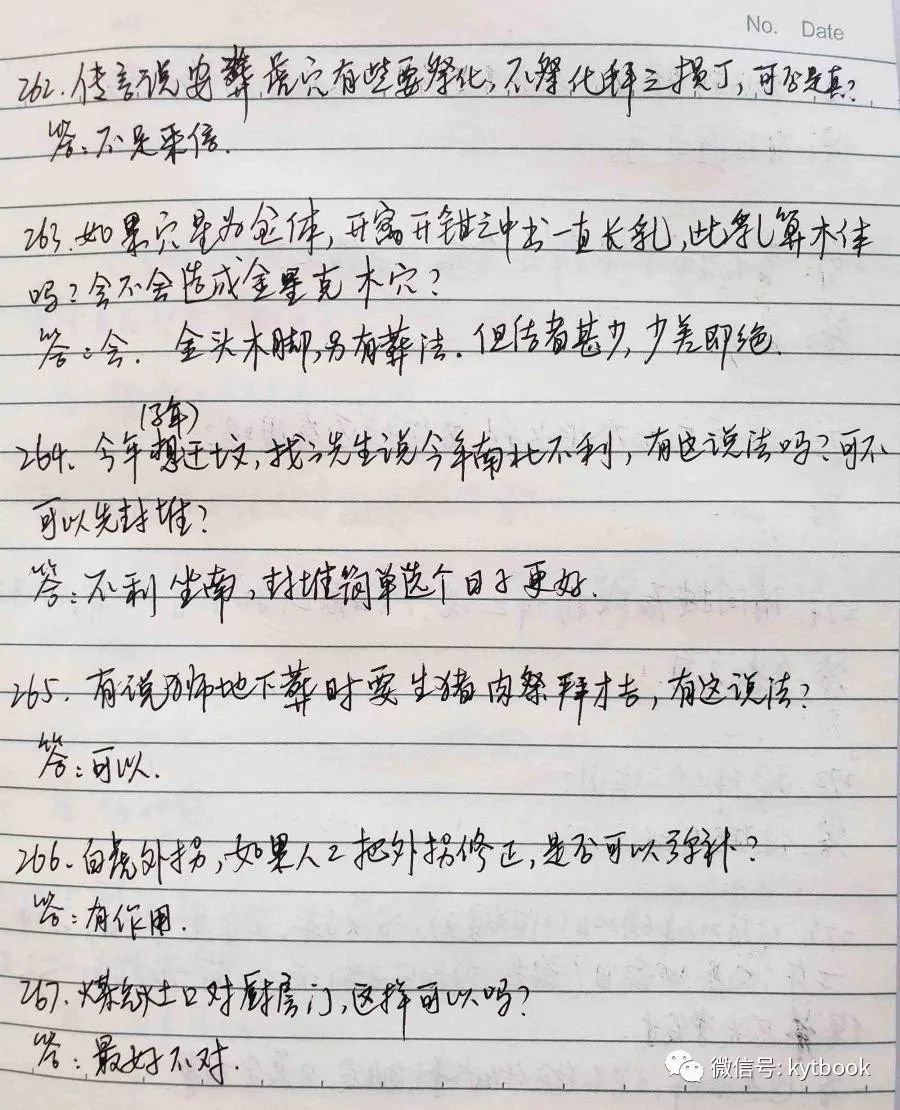 No. Date
262.传言说安葬虎穴有些要祭化,不祭化拜之损丁,可否是真?
答:不足采信.
263.如果穴星为金体,开窝开钳之中出一直长乳,此乳算木体
吗?会不会造成金星克木穴?
答:会. 金头木脚,另有葬法.但结者甚少,少差即绝.
(子年)
264.今年想迁坟,找了先生说今年南北不利,有这说法吗?可不
可以先封堆?
答:不利坐南,封堆简单选个日子更好.
265.有说狮地下葬时要生猪肉祭拜才吉,有这说法?
答:可以.
266.白虎外拐,如果人工把外拐修正,是否可以弥补?
答:有作用.
267.煤气灶口对厨房门,这样可以吗?
答:最好不对.
微信号: kytbook